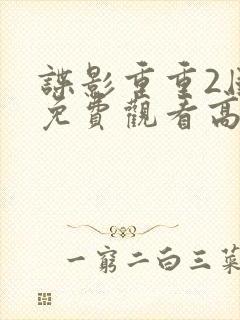 諜影重重2
免費觀看高
一窮二白三菜